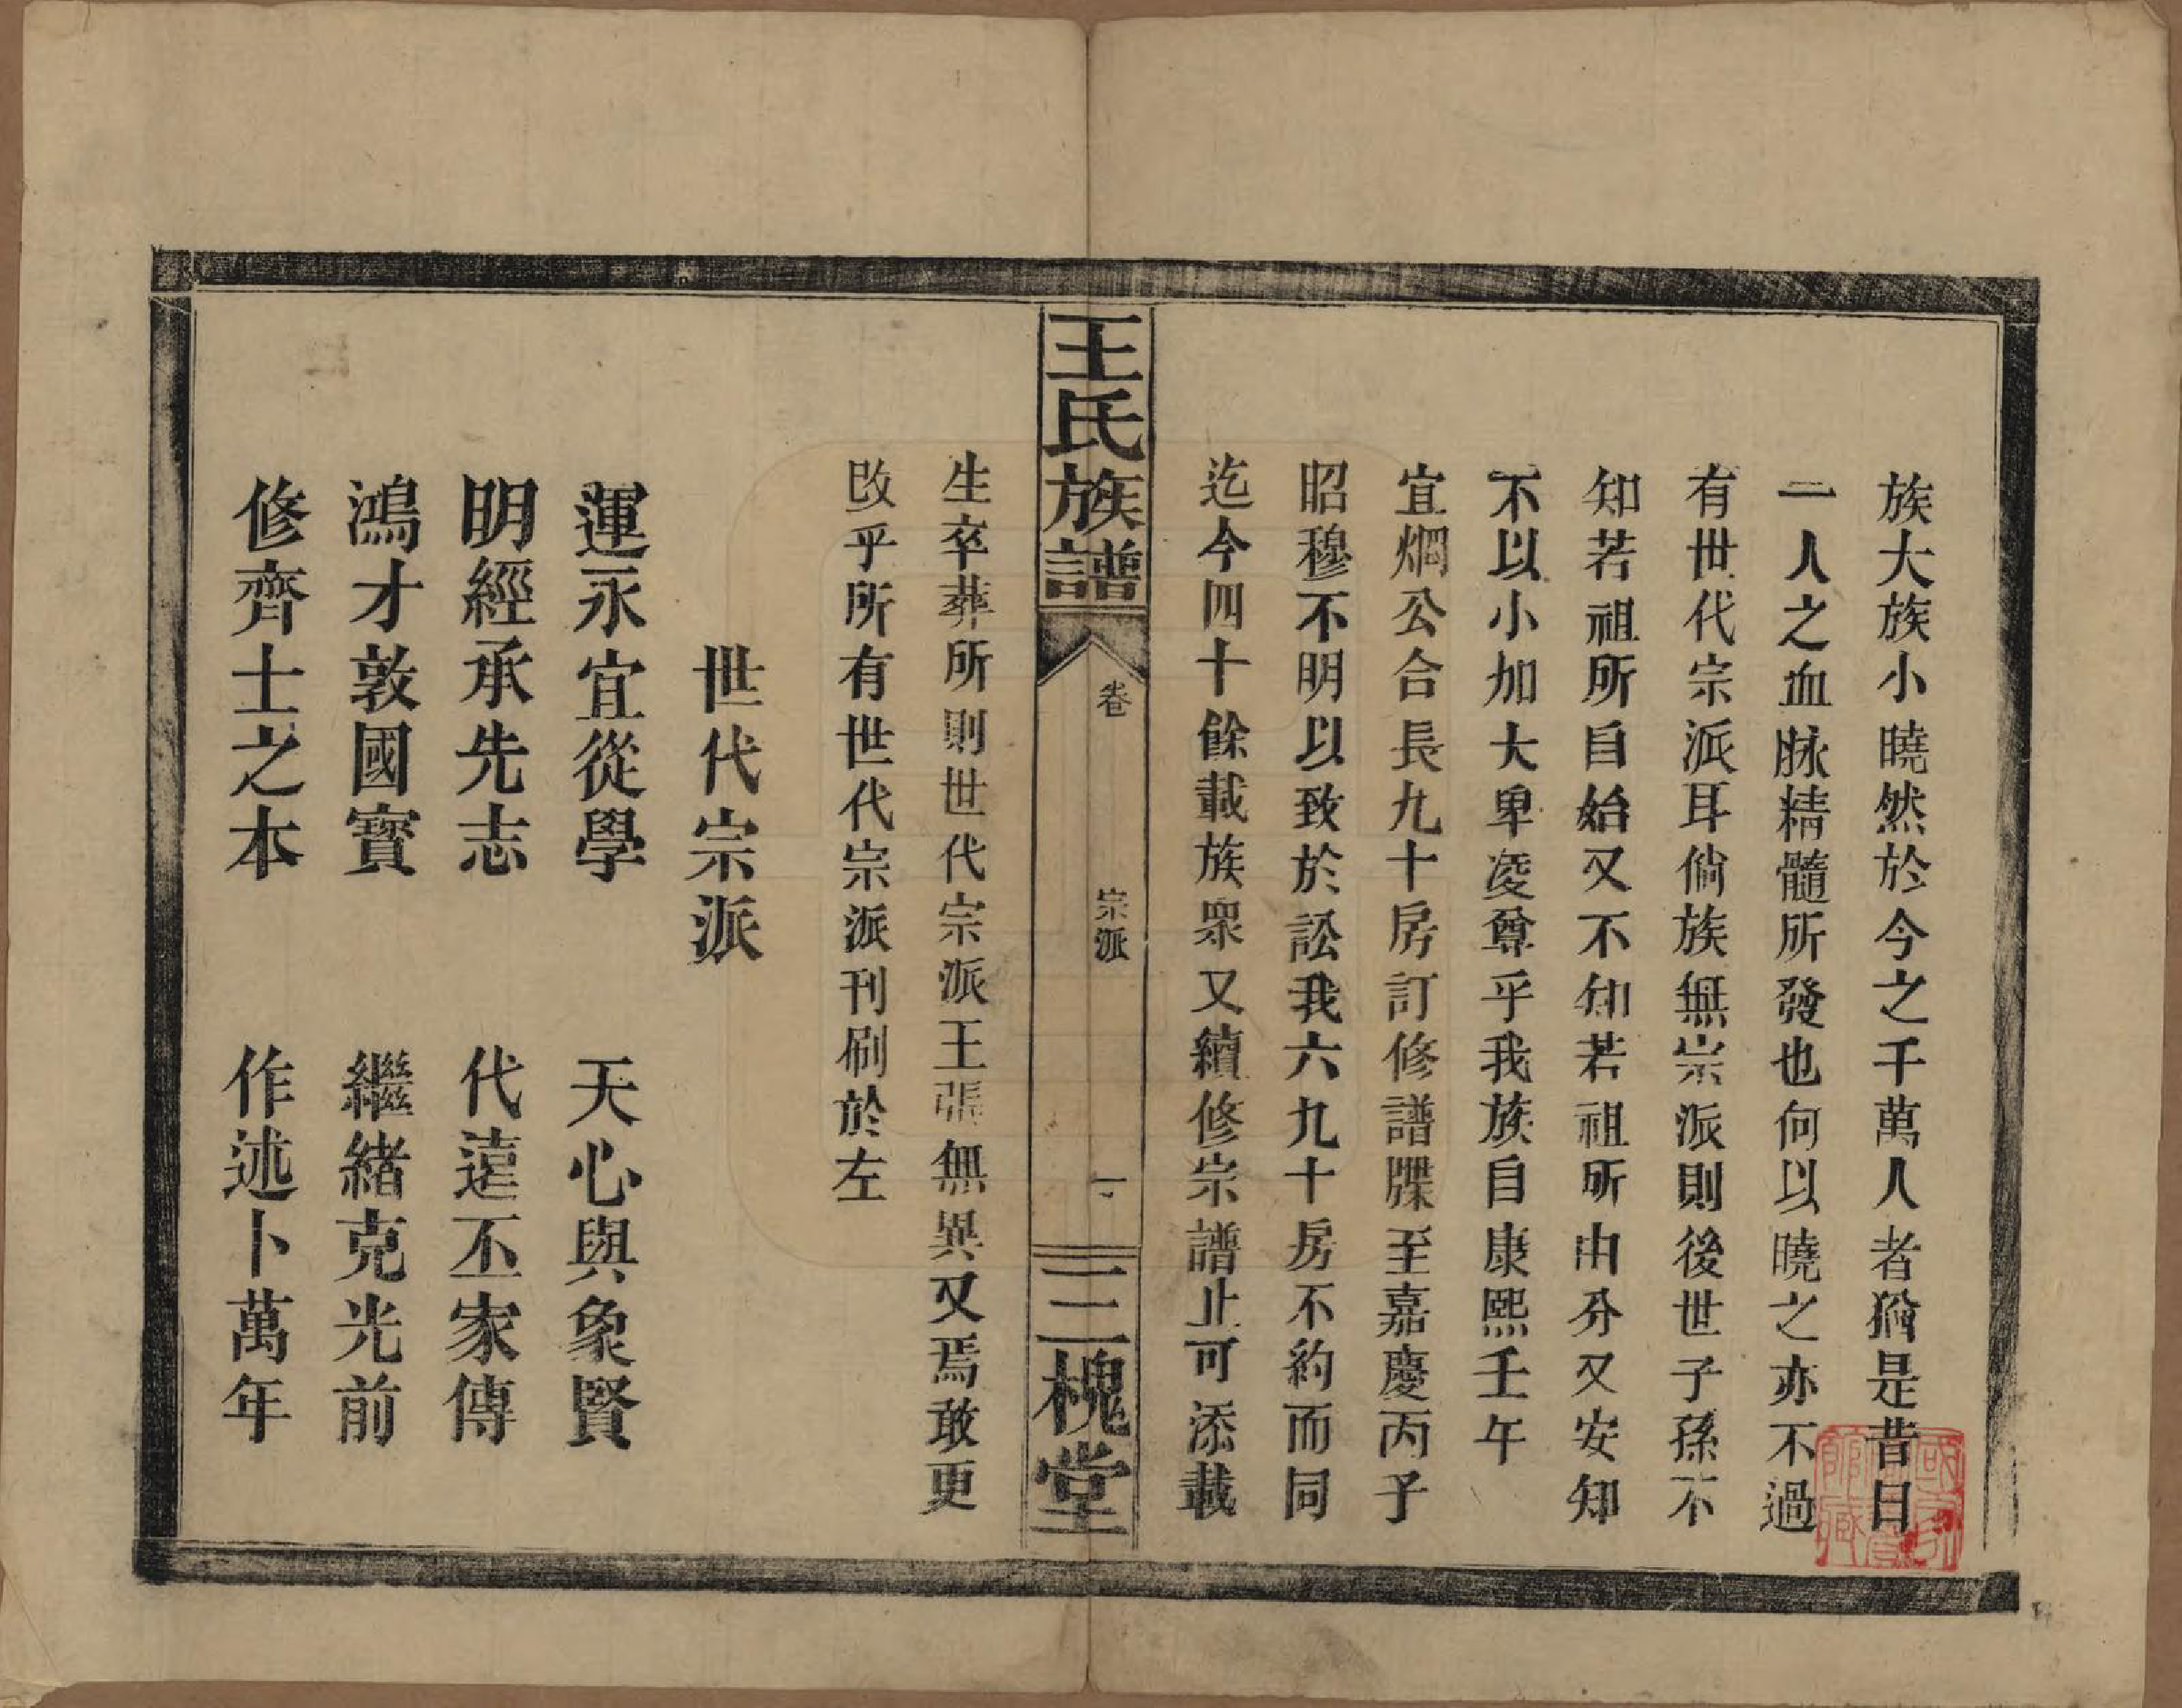 族大族小曉然於今之千萬人者猶是昔日
一人之血脉精髓所發也何以曉之亦不過
有世代宗派耳倘族無宗派則後世子孫不
知若祖所自始又不知若祖所由分又安知
不以小加大卑凌尊乎我族自康熙壬午
宜烱公合長九十房訂修譜牒至嘉慶丙子
昭穆不明以致於訟我六九十房不約而同
迄今四十餘載族衆又續修宗譜止可添載
王氏族譜
卷
宗派
一
三槐堂
生卒葬所則世代宗派王張無異又焉敢更
改乎所有世代宗派刊刷於左
世代宗派
運永宜從學 天心與象賢
明經承先志 代遠丕家傳
鴻才敦國寶 繼緒克光前
修齊士之本 作述卜萬年